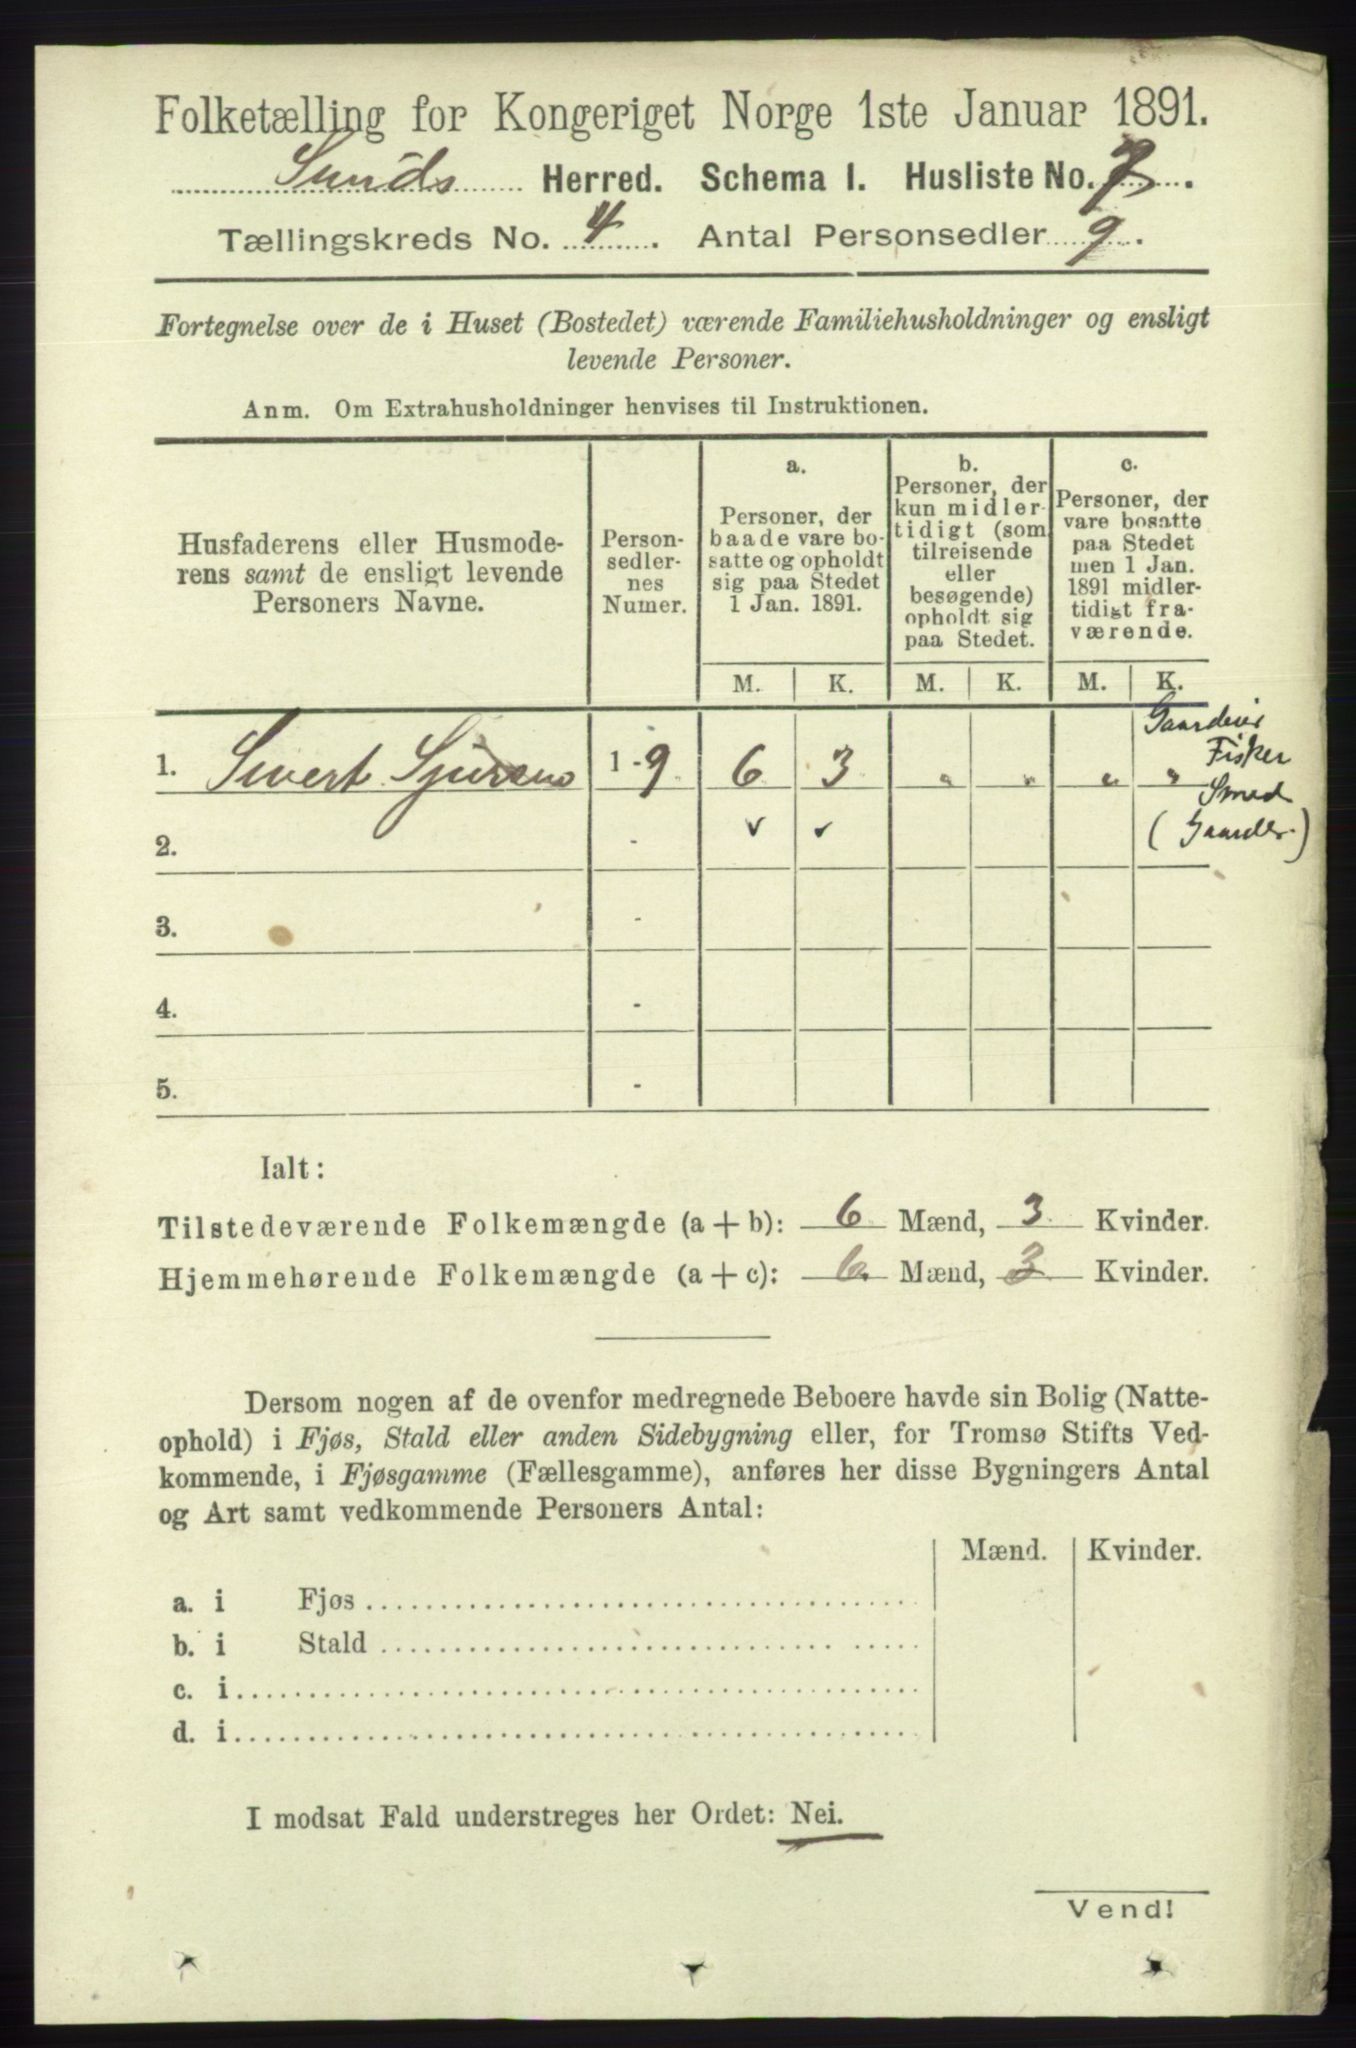 Folketælling for Kongeriget Norge 1ste Januar 1891.
Sunds Herred. Schema I. Husliste No. 7.
Tællingskreds No. 4. Antal Personsedler 9.
Fortegnelse over de i Huset (Bostedet) værende Familiehusholdninger og ensligt
levende Personer.
Anm. Om Extrahusholdninger henvises til Instruktionen.
Husfaderens eller Husmode-
rens samt de ensligt levende
Personers Navne.
Person-
sedler-
nes
Numer.
a.
Personer, der
baade vare bo-
satte og opholdt
sig paa Stedet
1 Jan. 1891.
b.
Personer, der
kun midler-
tidigt (som
tilreisende
eller
besøgende)
opholdt sig
paa Stedet.
c.
Personer, der
vare bosatte
paa Stedet
men 1 Jan.
1891 midler-
tidigt fra-
værende.
M. K. M. K. M. K.
Gaardeier
Fisker
Smed
(Gaardbr.)
1. Sivert Sjursen 1-9 6 3 „ „ „ „
2. - ✓ ✓
3. -
4. -
5. -
Ialt:
Tilstedeværende Folkemængde (a + b): 6 Mænd, 3 Kvinder.
Hjemmehørende Folkemængde (a + c): 6 Mænd, 3 Kvinder.
Dersom nogen af de ovenfor medregnede Beboere havde sin Bolig (Natte-
ophold) i Fjøs, Stald eller anden Sidebygning eller, for Tromsø Stifts Ved-
kommende, i Fjøsgamme (Fællesgamme), anføres her disse Bygningers Antal
og Art samt vedkommende Personers Antal:
Mænd. Kvinder.
a. i Fjøs
b. i Stald
c. i
d. i
I modsat Fald understreges her Ordet: Nei.
Vend!